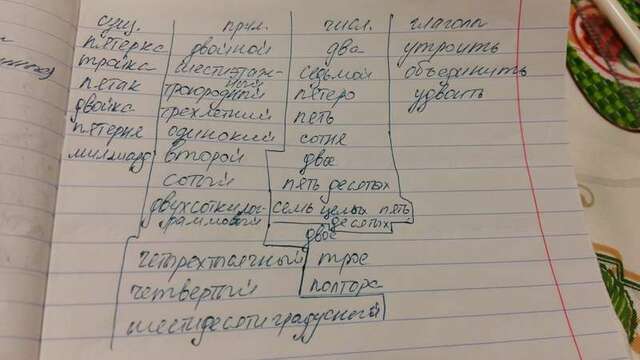 сущ. прил. числ. глаголы
пятерка двойной два утроить
тройка шестиэтаж- седьмой объединить
ный
пятак троюродный пятеро удвоить
двойка трехлетний пять
пятерня одинокий сотня
миллиард второй двое
сотый пять десятых
двухсоткилог- семь целых пять
раммовый десятых
двое
четырехтысячный трое
четвертый полтора
шестидесятиградусной